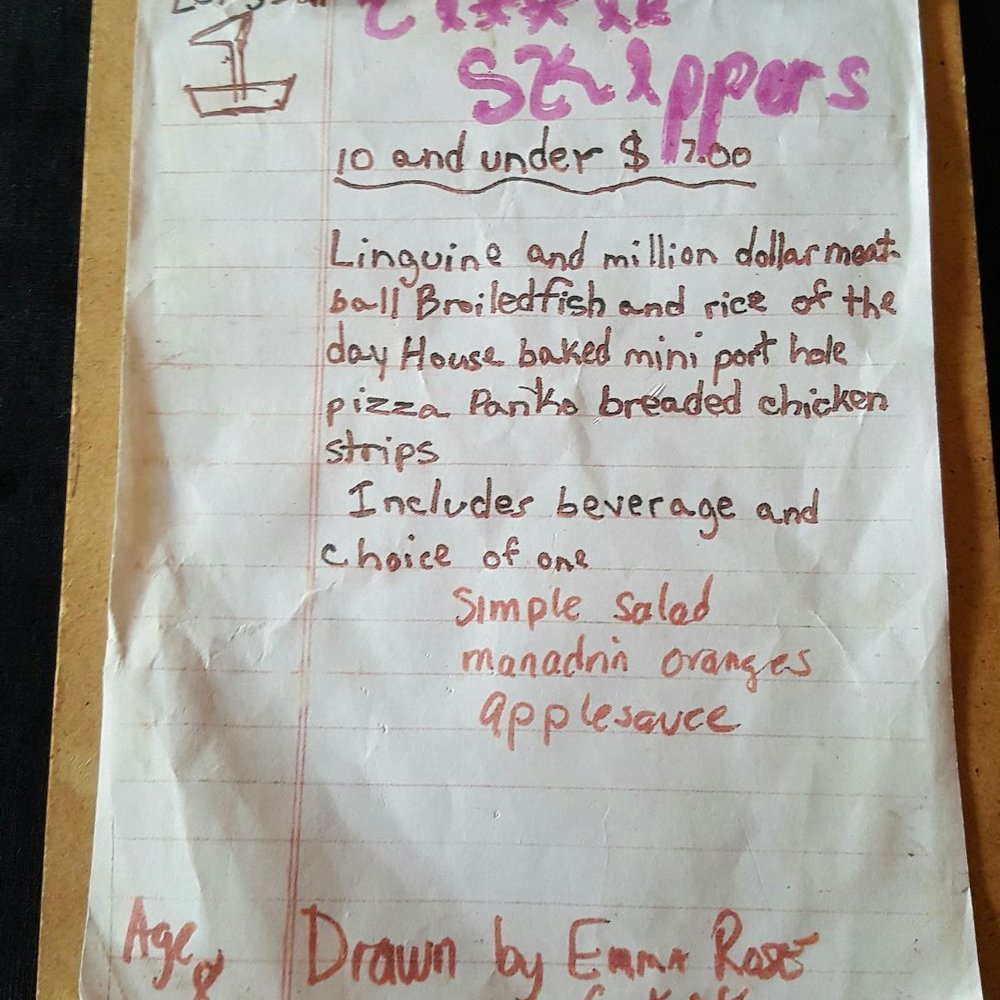 Skippers
10 and under $ 7.00
Linguine and million dollar meat-
ball Broiled fish and rice of the
day House baked mini port hole
pizza Panko breaded chicken
strips
Includes beverage and
choice of one
simple salad
manadrin oranges
applesauce
Age 8
Drawn by Emma Rose